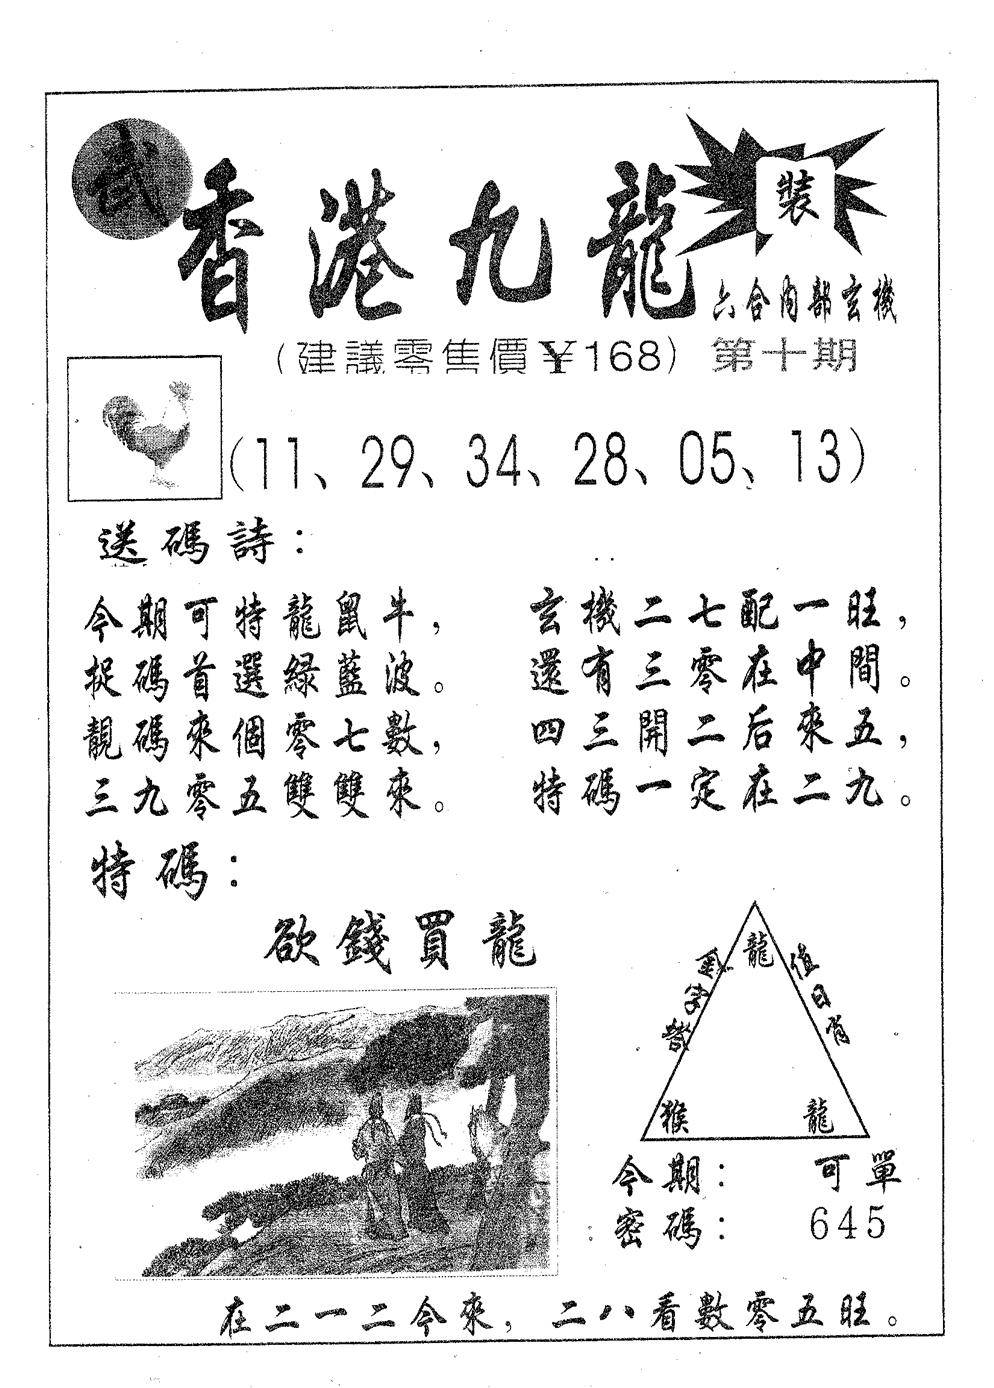 武
香港九龍
裝
六合内部玄機
(建議零售價¥168) 第十期
(11、29、34、28、05、13)
送碼詩：
今期可特龍鼠牛，
捉碼首選緑藍波。
靚碼來個零七數，
三九零五雙雙來。
玄機二七配一旺，
還有三零在中間。
四三開二后來五，
特碼一定在二九。
特碼：
欲錢買龍
龍
值日肖
猴
龍
今期： 可單
密碼： 645
在二一二今來，二八看數零五旺。